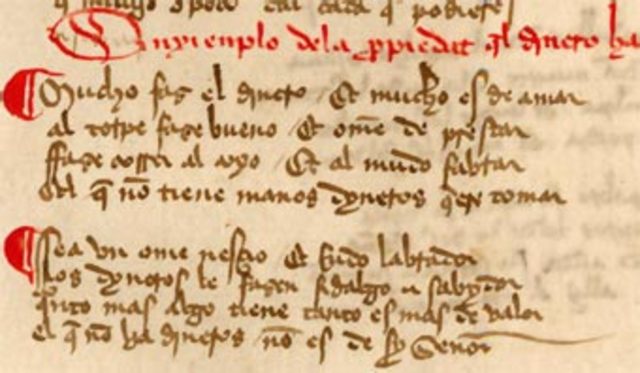 q podieres
Enxienplo dela ppiedat ql dinero ha
Mucho faz el dinero / Et mucho es de amar
al torpe faze bueno / Et ome de prestar
ffaze correr al coxo / Et al mudo fablar
el q̃ nõ tiene manos dyneros q̃ere tomar
Sea vn ome nesçio Et Rudo labrador
los dyneros le fazen fidalgo e sabydor
q̃nto mas algo tiene tanto es mas de valor
el q̃ nõ ha dineros nõ es de sy Señor